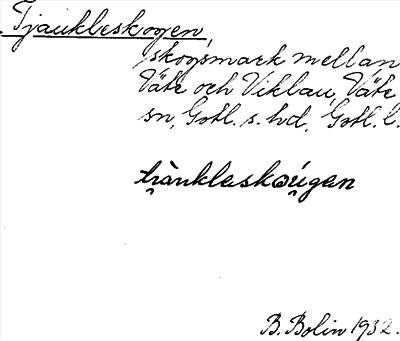 Tjaukleskogen,
skogsmark mellan
Väte och Viklau, Väte
sn, Gotl. s. hd, Gotl. l.
B. Bolin 1932.